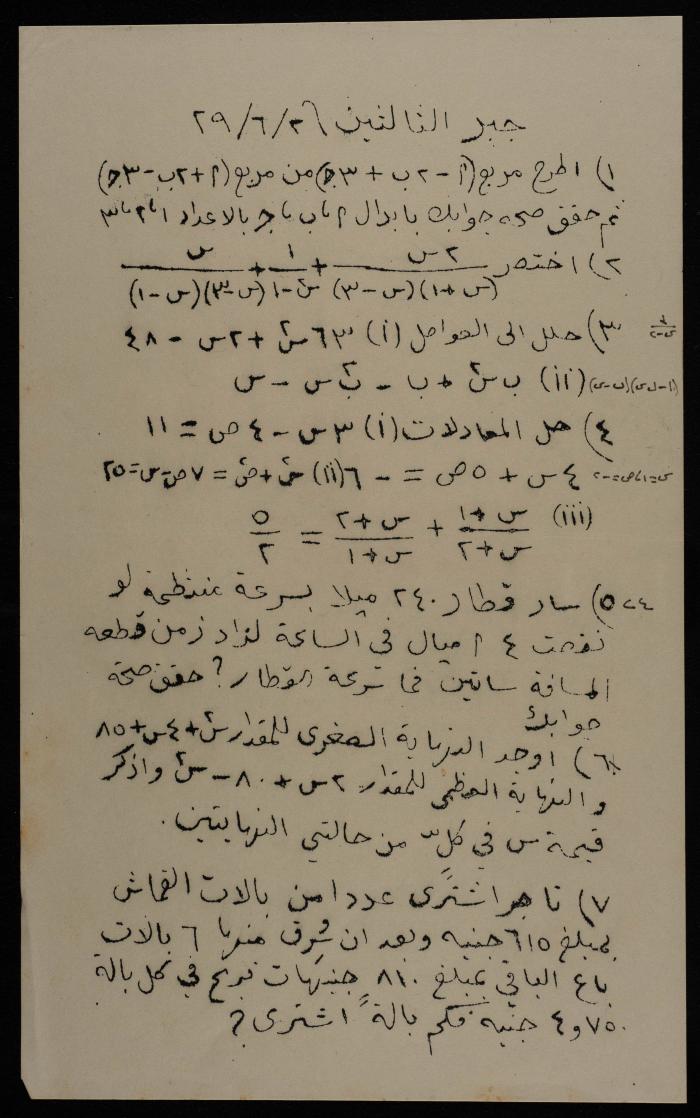 جبر الثالثين ٢٩/٦/٢٦
١) اطرح مربع (أ - ٢ ب + ٣ جـ) من مربع (أ + ٢ ب - ٣ جـ)
ثم حقق صحة جوابك بابدال أ، ب، جـ بالاعداد ١، ٢، ٣
٢) اختصر ٢ س/((س + ١)(س - ٣)) + ١/(س٢ - ١) + س/((س - ٣)(س - ١))
٣) حلل الى العوامل (i) ٣٦ س٢ + ٢ س - ٤٨
(ii) ب س٢ + ب - ب٢ س - س
٤) حل المعادلات (i) ٣ س - ٤ ص = ١١
٤ س + ٥ ص = - ٦ (ii) س٢ + ص٢ = ٧ ص - س = ٢٥
(iii) (س + ١)/(س + ٢) + (س + ٢)/(س + ١) = ٥/٢
٥) سار قطار ٢٤٠ ميلا بسرعة منتظمة لو
نقصت ٤ اميال في الساعة لزاد زمن قطعه
المسافة ساعتين فما سرعة القطار؟ حقق صحة
جوابك
٦) اوجد النهاية الصغرى للمقدار س٢ + ٤ س + ٨٥
والنهاية العظمى للمقدار ٢ س + ٨٠ - س٢ واذكر
قيمة س في كلٍّ من حالتي النهايتين.
٧) تاجر اشترى عددا من بالات القماش
بمبلغ ٦١٥ جنيه وبعد ان سُرق منها ٦ بالات
باع الباقي بمبلغ ٨١٠ جنيهات فربح في كل بالة
٤٫٧٥٠ جنيه فكم بالةً اشترى؟